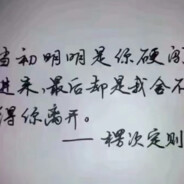 当初明明是你硬闯
进来,最后却是我舍不
得你离开。
——楞次定则